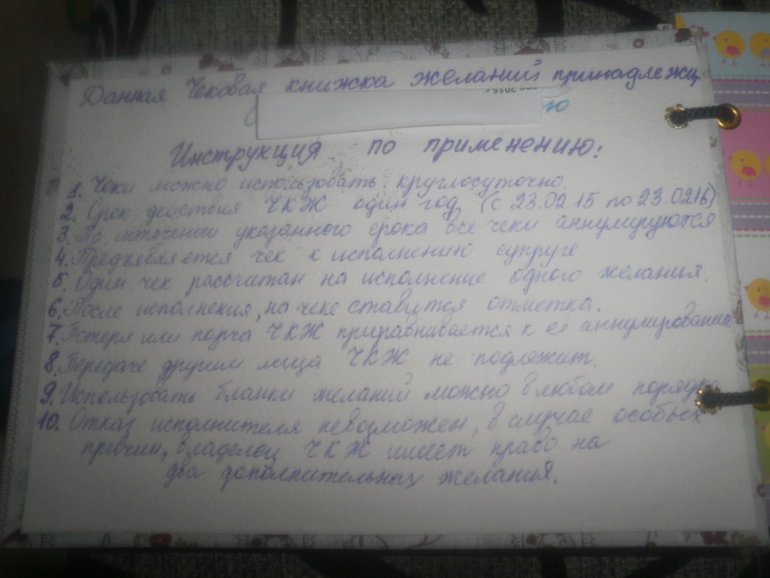 Данная Чековая книжка желаний принадлежи
ю
Инструкция по применению:
1. Чеки можно использовать круглосуточно.
2. Срок действия ЧКЖ один год (с 23.02.15 по 23.0216)
3. По истечении указанного срока все чеки аннумируются
4. Предъявляется чек к исполнению супруге.
5. Один чек рассчитан на исполнение одного желания.
6. После исполнения, на чеке ставится отметка.
7. Потеря или порча ЧКЖ приравнивается к её аннумированию
8. Передаче другим лица ЧКЖ не подлежит.
9. Использовать бланки желаний можно в любом порядке
10. Отказ исполнителя невозможен, в случае особых
причин, владелец ЧКЖ имеет право на
два дополнительных желания.